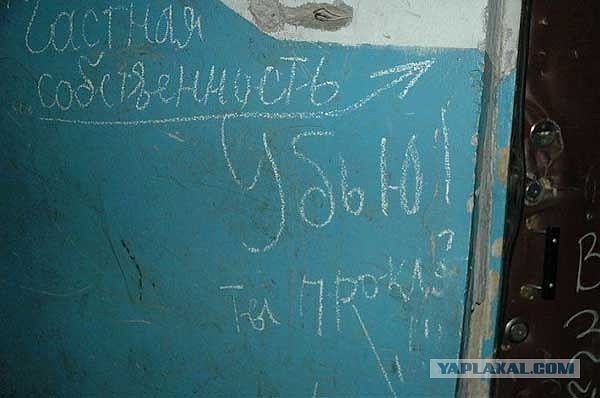 Частная
собственность
Убью!
Ты
В
3
YAPLAKAL.COM